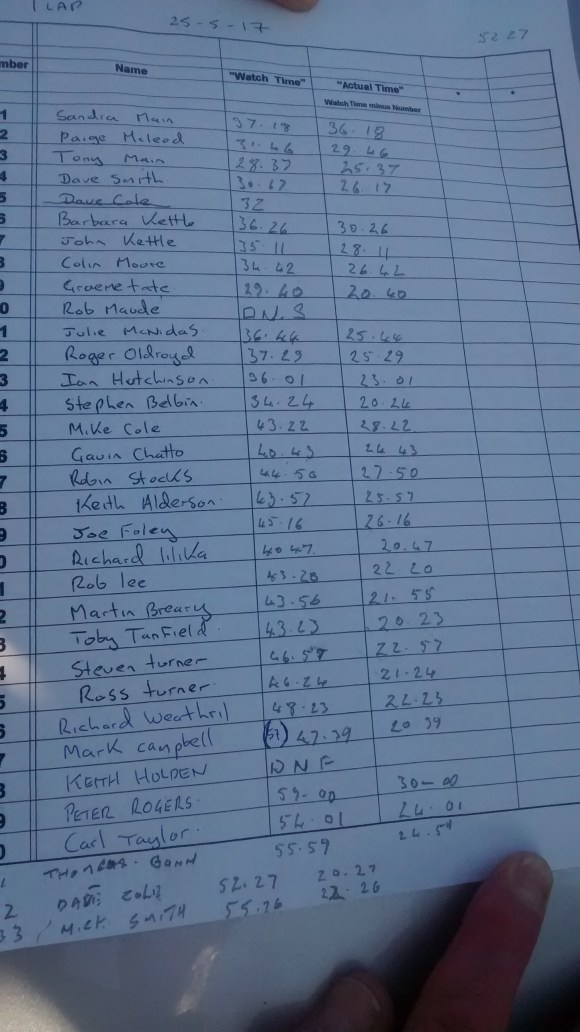 1 LAP 25-5-17 52.27
mber Name "Watch Time" "Actual Time"
Watch Time minus Number
1 Sandra Main 37.18 36.18
2 Paige Mcleod 31.46 29.46
3 Tony Main 28.37 25.37
4 Dave Smith 30.17 26.17
5 Dave Cole 32
6 Barbara Kettle 36.26 30.26
7 John Kettle 35.11 28.11
8 Colin Moore 34.42 26.42
9 Graeme tate 29.40 20.40
0 Rob Maude D.N.S
1 Julie McNidas 36.44 25.44
2 Roger Oldroyd 37.29 25.29
3 Ian Hutchinson 36.01 23.01
4 Stephen Belbin 34.24 20.24
5 Mike Cole 43.22 28.22
6 Gavin Chatto 40.43 24 43
7 Robin Stocks 44.50 27.50
8 Keith Alderson 43.57 25.57
9 Joe Foley 45.16 26.16
0 Richard 40 47 20.47
1 Rob lee 43.20 22 20
2 Martin Breary 43.56 21.55
3 Toby Tanfield 43.23 20 23
4 Steven turner 46.57 22.57
5 Ross turner 46.24 21.24
6 Richard Weathril 48.23 22.23
7 Mark campbell 47.39 20 39
8 KEITH HOLDEN D N F
9 PETER ROGERS 59-00 30-00
0 Carl Taylor 54.01 24.01
1 55.59 24.59
2 52.27 20.27
33 Mick SMITH 55.26 22.26